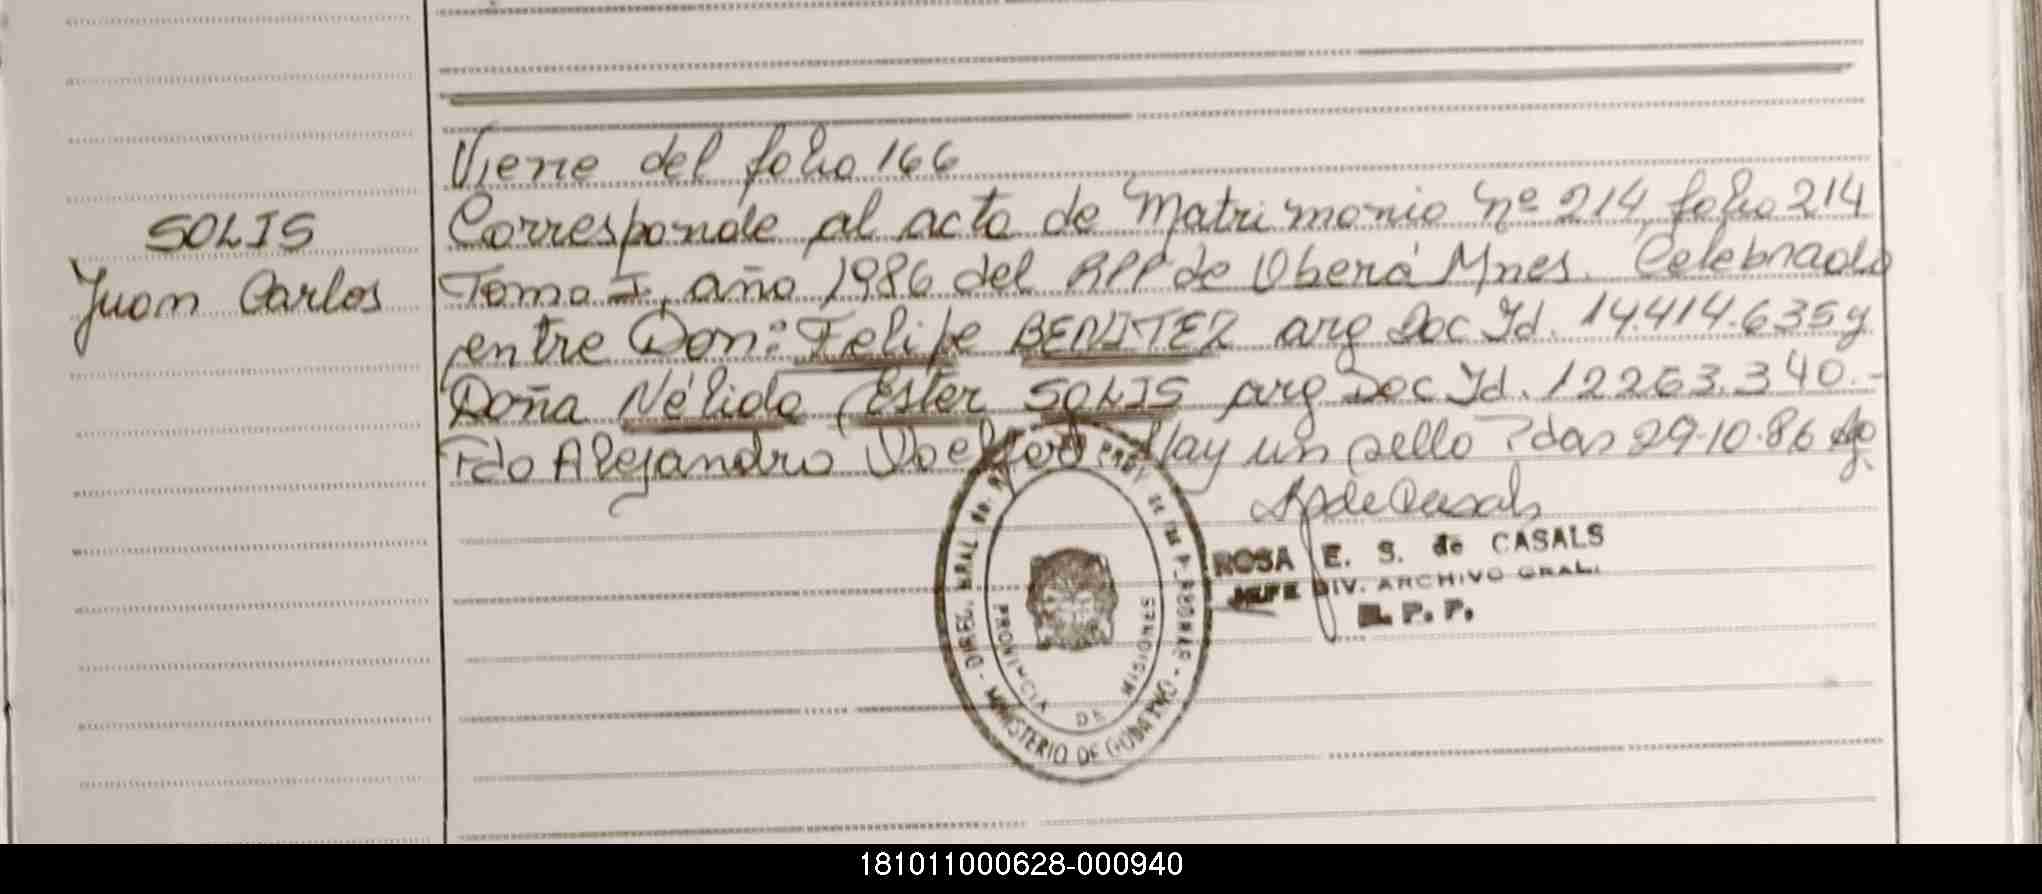 Viene del folio 166
SOLIS
Juan Carlos
Corresponde al acta de Matrimonio nº 214, folio 214
Tomo I, año 1986 del RPP de Oberá Mnes. Celebrado
entre Don: Felipe BENITEZ arg Doc Id. 14.414.635 y
Doña Nélida Ester SOLIS arg Doc Id. 12263.340.-
Fdo Alejandro Hay un sello Pdas 29-10-86
ROSA E. S. de CASALS
JEFE DIV. ARCHIVO GRAL.
R. P. P.
DIREC. GRAL. de las P
MINISTERIO DE GOBIERNO
PROVINCIA DE MISIONES
181011000628-000940